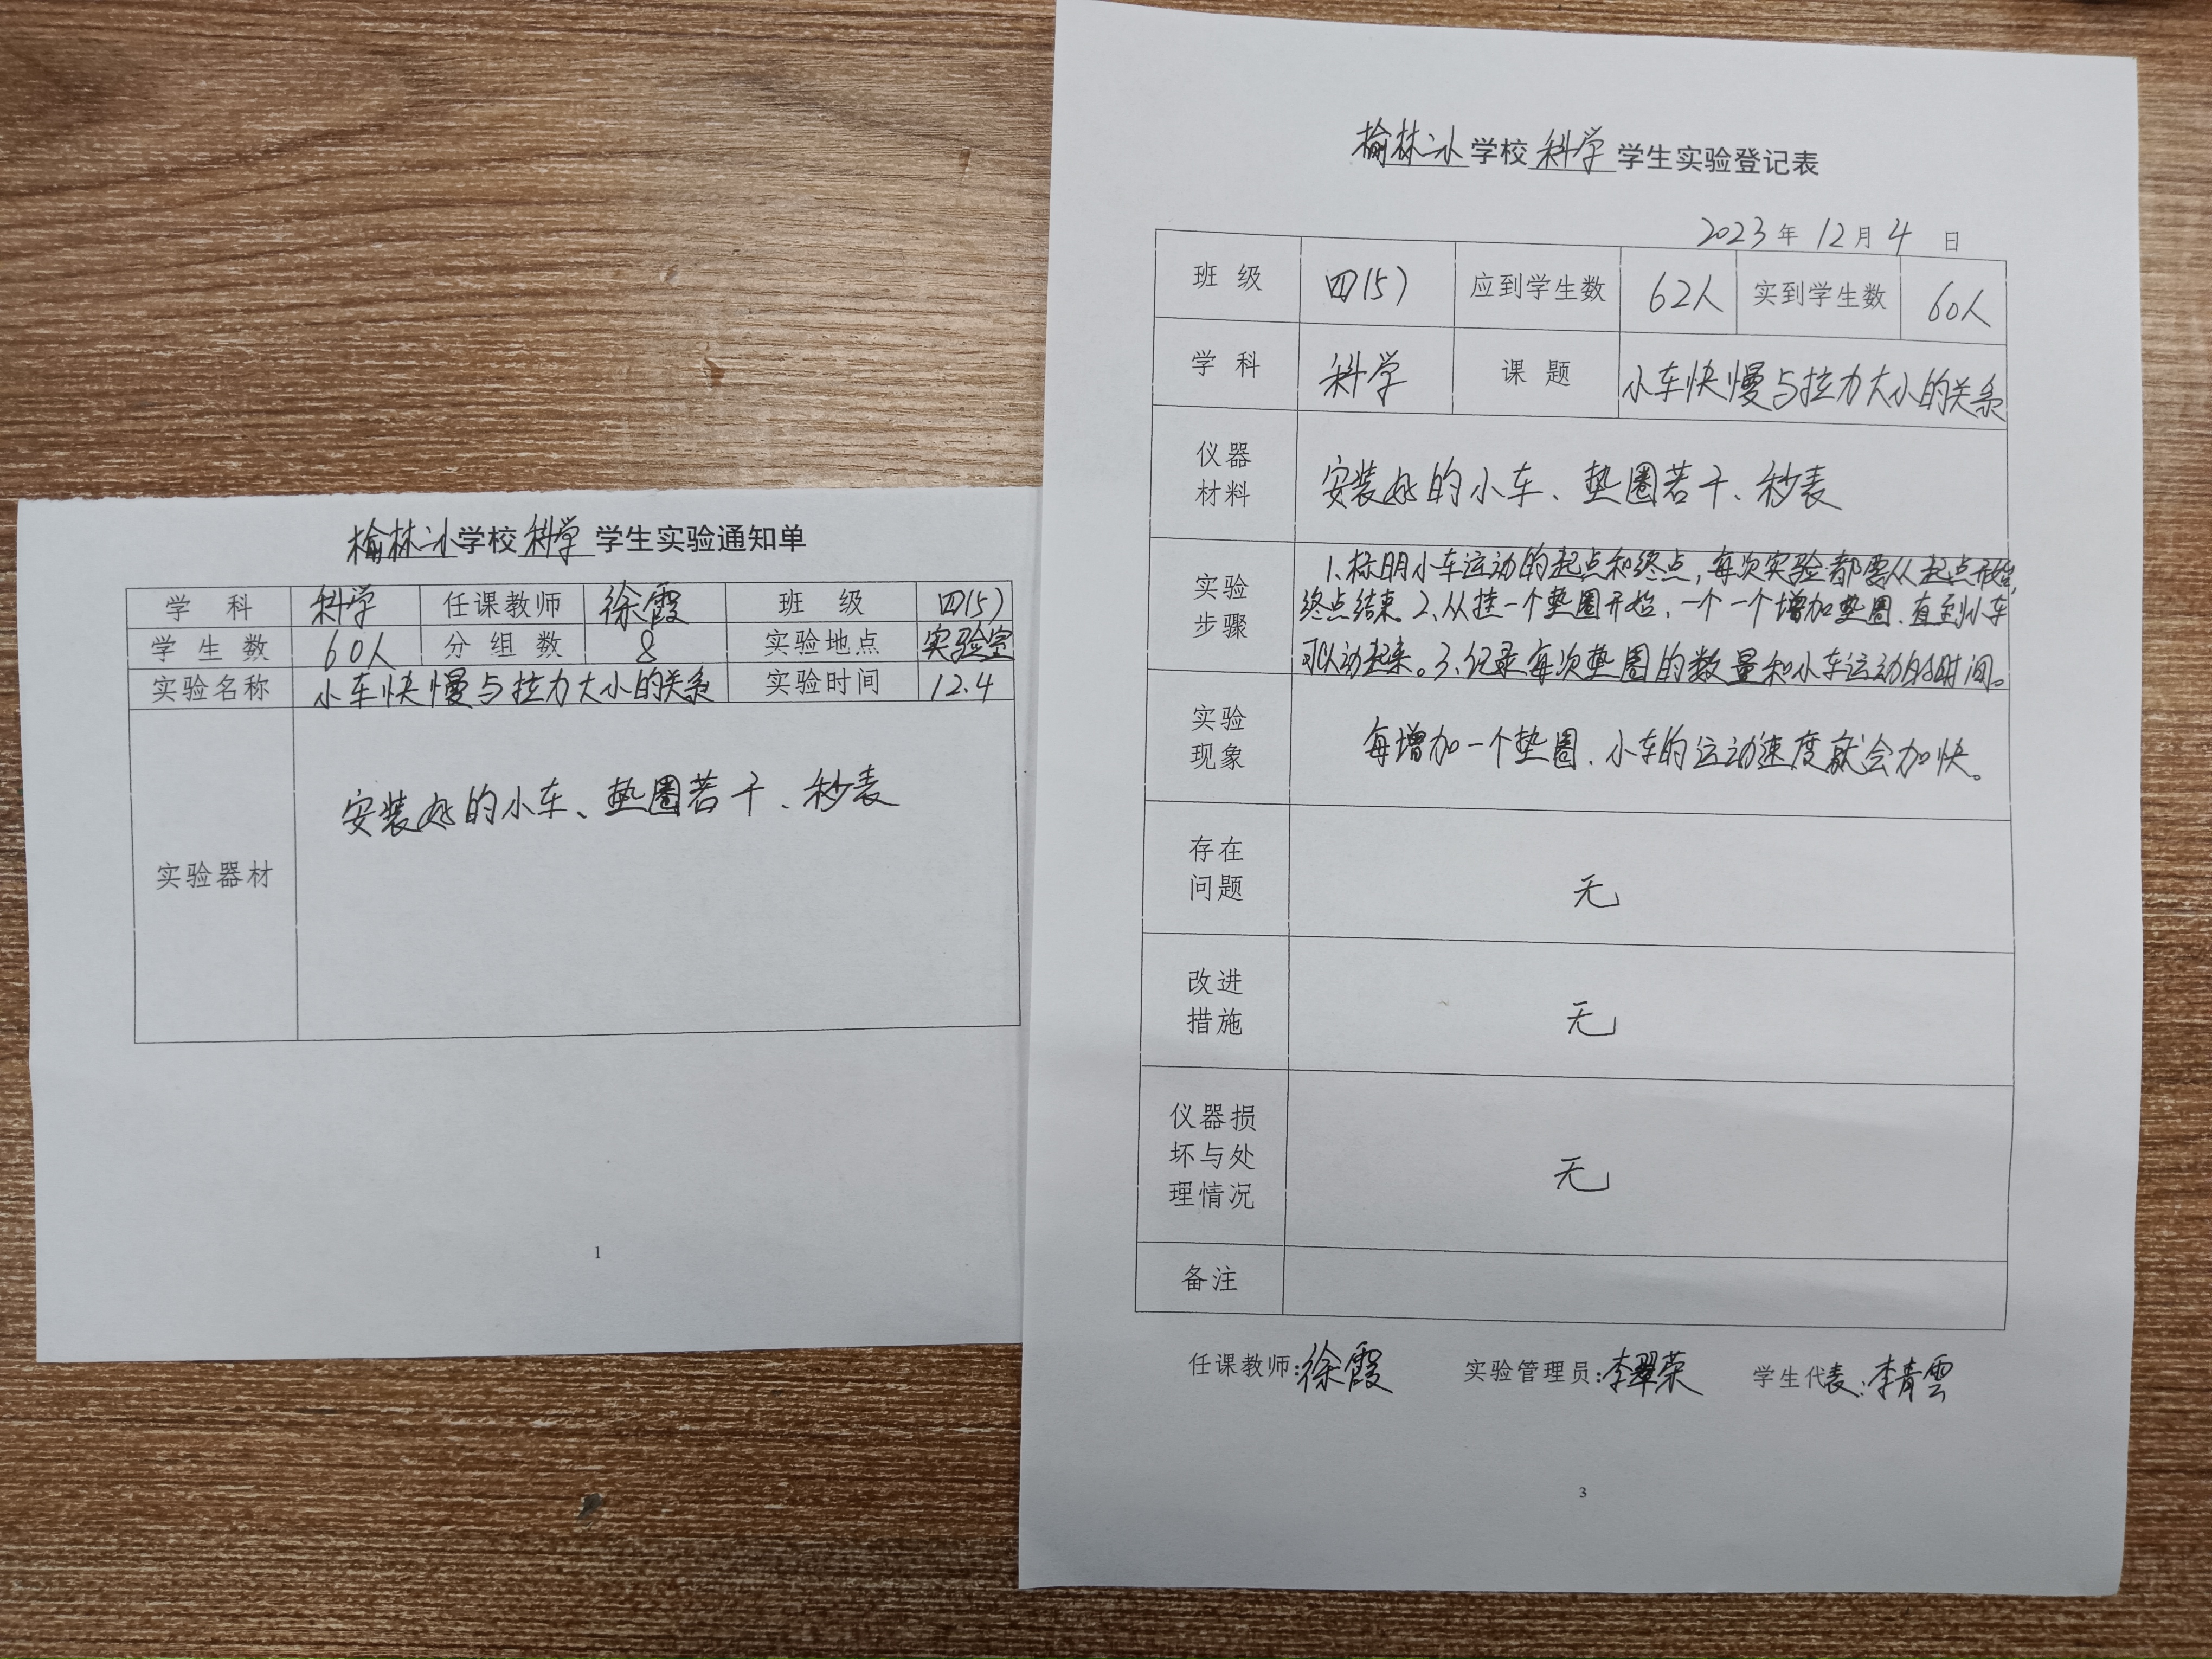 榆林小学校科学学生实验通知单
学 科 科学 任课教师 徐霞 班 级 四(5)
学 生 数 60人 分 组 数 8 实验地点 实验室
实验名称 小车快慢与拉力大小的关系 实验时间 12.4
实验器材 安装好的小车、垫圈若干、秒表
1
榆林小学校科学学生实验登记表
2023年12月4日
班 级 四(5) 应到学生数 62人 实到学生数 60人
学 科 科学 课 题 小车快慢与拉力大小的关系
仪器
材料
安装好的小车、垫圈若干、秒表
实验
步骤
1.标明小车运动的起点和终点,每次实验都要从起点开始,
终点结束。2.从挂一个垫圈开始,一个一个增加垫圈,直至小车
可以动起来。3.记录每次垫圈的数量和小车运动的时间。
实验
现象
每增加一个垫圈,小车的运动速度就会加快。
存在
问题
无
改进
措施
无
仪器损
坏与处
理情况
无
备注
任课教师:徐霞 实验管理员:李翠荣 学生代表:李青雲
3